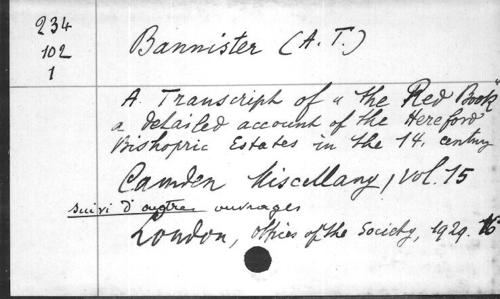 234
102
1
Bannister (A. T.)
A Transcript of "the Red Book"
a detailed account of the Hereford
Bishopric Estates in the 14. century
Camden Miscellany, vol. 15
suivi d'autres ouvrages
London, Offices of the Society, 1929. 16